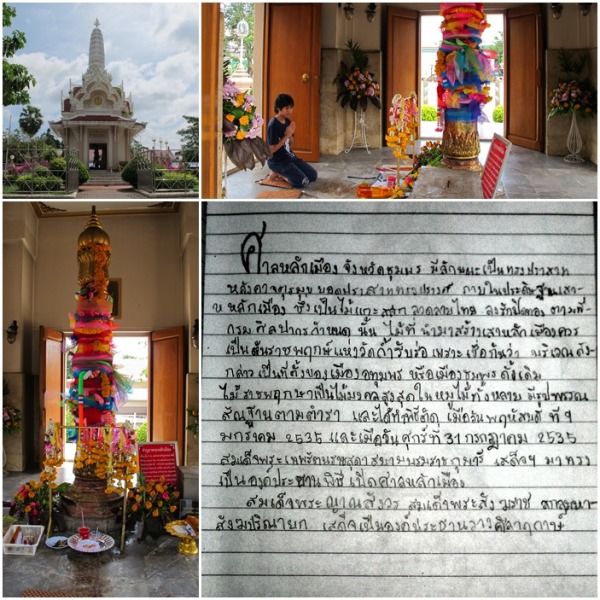 ศาลหลักเมือง จังหวัดชุมพร มีลักษณะเป็นทรงปราสาท
หลังคาจตุรมุข ยอดปรางค์ ภายในประดิษฐานเสา
หลักเมือง ซึ่งเป็นไม้แกะสลัก ลวดลายไทย ลงรักปิดทอง ตามที่
กรมศิลปากรกำหนด นั้น ไม้ที่ นำมาสร้างเสาหลักเมืองควร
เป็นต้นราชพฤกษ์แห่งวัดถ้ำรับร่อ เพราะ เชื่อกันว่า บริเวณดัง
กล่าว เป็นที่ตั้งของเมืองอุทุมพร หรือเมืองชุมพร ดั้งเดิม
ไม้ราชพฤกษาเป็นไม้มงคลสูงสุดใน หมู่ไม้ทั้งหลาย มีรูปพรรณ
สัณฐานตามตำรา และได้ทำพิธีตัด เมื่อวันพฤหัสบดี ที่ 9
มกราคม 2535 และเมื่อวันศุกร์ที่ 31 กรกฎาคม 2535
สมเด็จพระเทพรัตนราชสุดาฯ สยามบรมราชกุมารี เสด็จฯ มาทรง
เป็นองค์ประธานพิธี เปิดศาลหลักเมือง
สมเด็จพระญาณสังวร สมเด็จพระสังฆราช สกลมหา
สังฆปริณายก เสด็จเป็นองค์ประธานวางศิลาฤกษ์